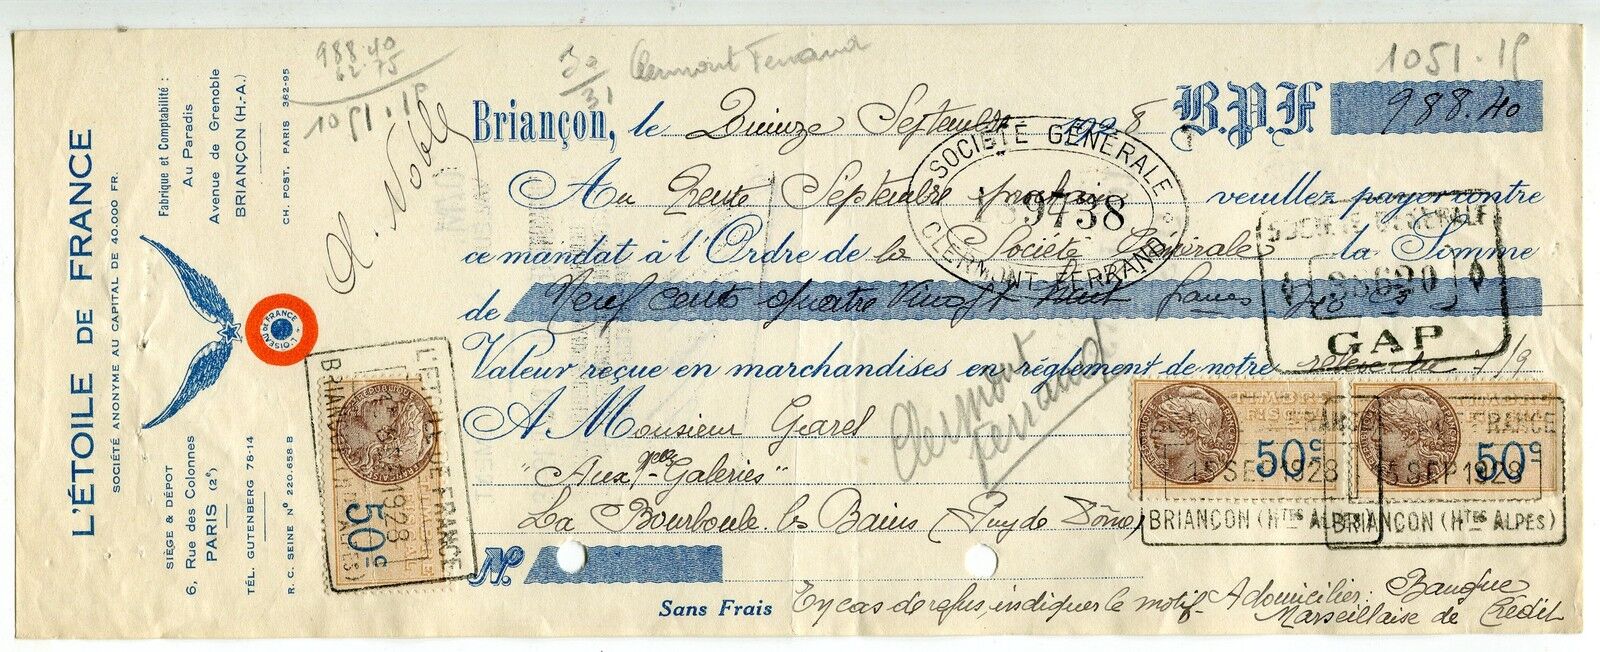 L'ÉTOILE DE FRANCE
SOCIÉTÉ ANONYME AU CAPITAL DE 40.000 FR.
SIÈGE & DÉPOT
6, Rue des Colonnes
PARIS (2e)
TÉL. GUTENBERG 78-14
R. C. SEINE N° 220.658 B
Fabrique et Comptabilité :
Au Paradis
Avenue de Grenoble
BRIANÇON (H.-A.)
CH. POST. PARIS 362-95
L'OISEAU DE FRANCE
988.40
62.75
1051.15
30/31 Clermont Ferrand
1051.15
Briançon, le Quinze Septembre 1928 B.P.F 988.40
Au Trente Septembre prochain veuillez payer contre
ce mandat à l'Ordre de la Société Générale la Somme
de Neuf cent quatre Vingt huit francs
Valeur reçue en marchandises en réglement de notre
A Monsieur Garel
"Aux Nelles Galeries"
La Bourboule les Bains (Puy de Dôme)
N°
Sans Frais En cas de refus, indiquer le motif - A domicilier: Banque
Marseillaise de Crédit
Clermont
Ferrand
SOCIÉTÉ GÉNÉRALE
9738
CLERMONT FERRAND
SOCIÉTÉ GÉNÉRALE
GAP
L'ETOILE DE FRANCE
1928
BRIANCON (Htes ALPES)
50c
TIMBRE FISCAL
50c
15 SEP 1928
BRIANCON (Htes ALPES)
FRANCE
50c
15 SEP 1928
BRIANCON (Htes ALPES)